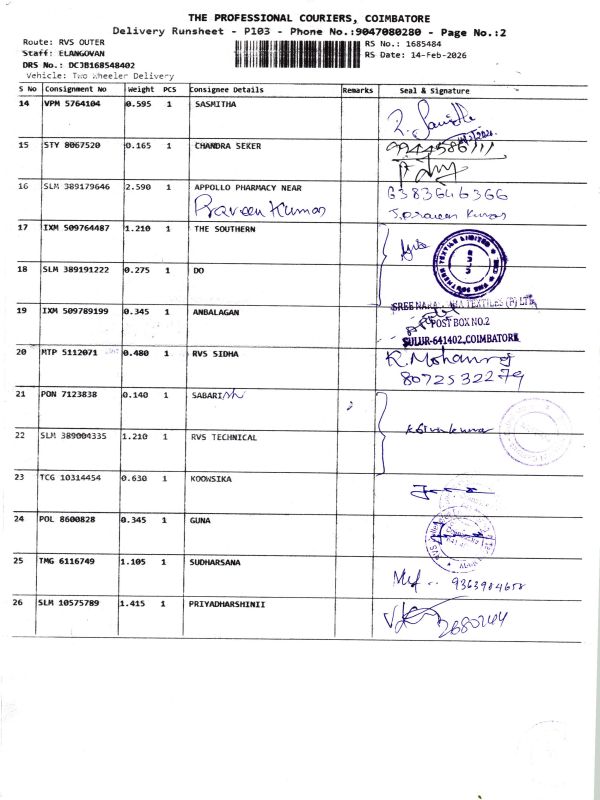 THE PROFESSIONAL COURIERS, COIMBATORE
Delivery Runsheet - P103 - Phone No.:9047080280 - Page No.:2
Route: RVS OUTER
RS No.: 1685484
Staff: ELANGOVAN
RS Date: 14-Feb-2026
DRS No.: DCJB168548402
Vehicle: Two Wheeler Delivery
S No Consignment No Weight PCS Consignee Details Remarks Seal & Signature
14 VPM 5764104 0.595 1 SASMITHA
15 STY 8067520 0.165 1 CHANDRA SEKER
9944586111
16 SLM 389179646 2.590 1 APPOLLO PHARMACY NEAR 6383646366
Praveen Kumar J.praveen kumar
17 IXM 509764487 1.210 1 THE SOUTHERN
18 SLM 389191222 0.275 1 DO
19 IXM 509789199 0.345 1 ANBALAGAN
POST BOX NO.2
SULUR-641402, COIMBATORE
20 MTP 5112071 0.480 1 RVS SIDHA R. Mohanraj
8072532279
21 PON 7123838 0.140 1 SABARI
22 SLM 389004335 1.210 1 RVS TECHNICAL
23 TCG 10314454 0.630 1 KOOWSIKA
24 POL 8600828 0.345 1 GUNA
25 TMG 6116749 1.105 1 SUDHARSANA
9363984658
26 SLM 10575789 1.415 1 PRIYADHARSHINII